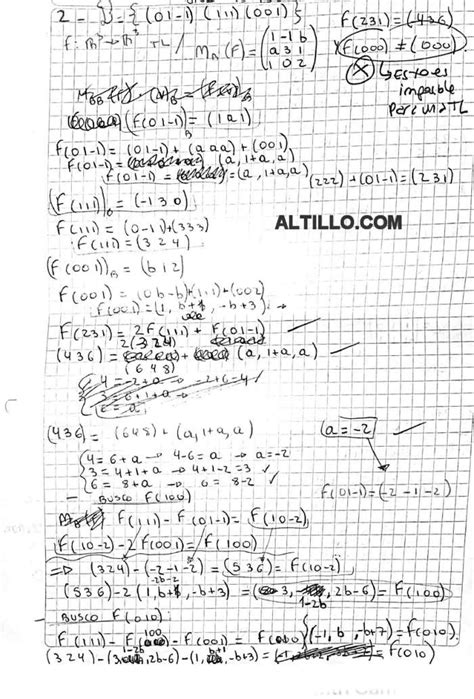 2- B = { (01-1) (111) (001) }
F(231) = (436)
f: ℝ³ → ℝ³ TL / M_B(F) = (1 -1 b
a 3 1
1 0 2)
F(000) ≠ (000)
X ↳ Esto es imposible para una TL
(F(01-1))_B = (1a1)
F(01-1) = (01-1) + (aaa) + (001)
F(01-1) = (a, 1+a, a)
F(01-1) = (a, 1+a, a)
(222) + (01-1) = (231)
(F(111))_B = (-130)
ALTILLO.COM
F(111) = (0-11) + (333)
F(111) = (324)
(F(001))_B = (b12)
F(001) = (0b-b) + (111) + (002)
F(001) = (1, b+1, -b+3)
F(231) = 2F(111) + F(01-1)
2(324)
(436) = + (a, 1+a, a)
(648)
4 = -2+a → -2+6=4
(436) = (648) + (a, 1+a, a)
(a = -2)
4 = 6+a → 4-6 = a → a = -2
3 = 4+1+a → 4+1-2 = 3 ✓
6 = 8+a → 6 = 8-2 ✓
F(01-1) = (-2-1-2)
- BUSCO F(100)
F(111) - F(01-1) = F(10-2)
F(10-2) - 2F(001) = F(100)
=> (324) - (-2-1-2) = (536) = F(10-2)
-2b-2
(536) - 2(1, b+1, -b+3) = (3, 1-2b, 2b-6) = F(100)
- BUSCO F(010)
F(111) - F(100) - F(001) = F(010) (-1, b, -b+7) = F(010)
(324) - (3, 1-2b, 2b-6) - (1, b+1, -b+3) = F(010)